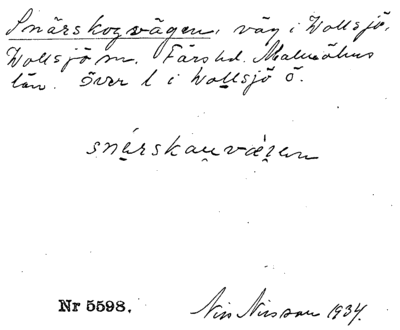 Snärskogvägen, väg i Wollsjö,
Wollsjö m. Färs hd. Malmöhus
län. över l i Wollsjö ö.
snärskauvæ̀ɜen
Nr 5598.
Nils Nilsson 1934.